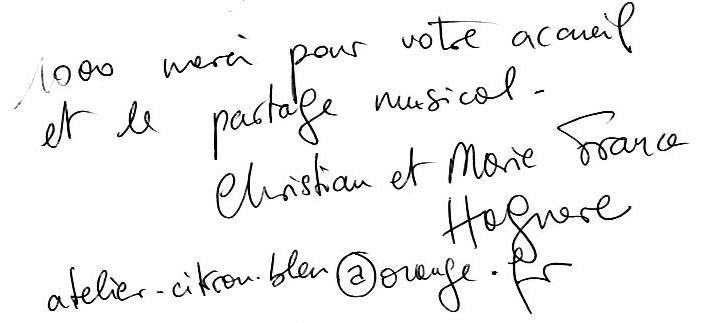 1000 merci pour votre accueil
et le partage musical -
Christian et Marie France
Hagnere
atelier-citron.bleu@orange.fr